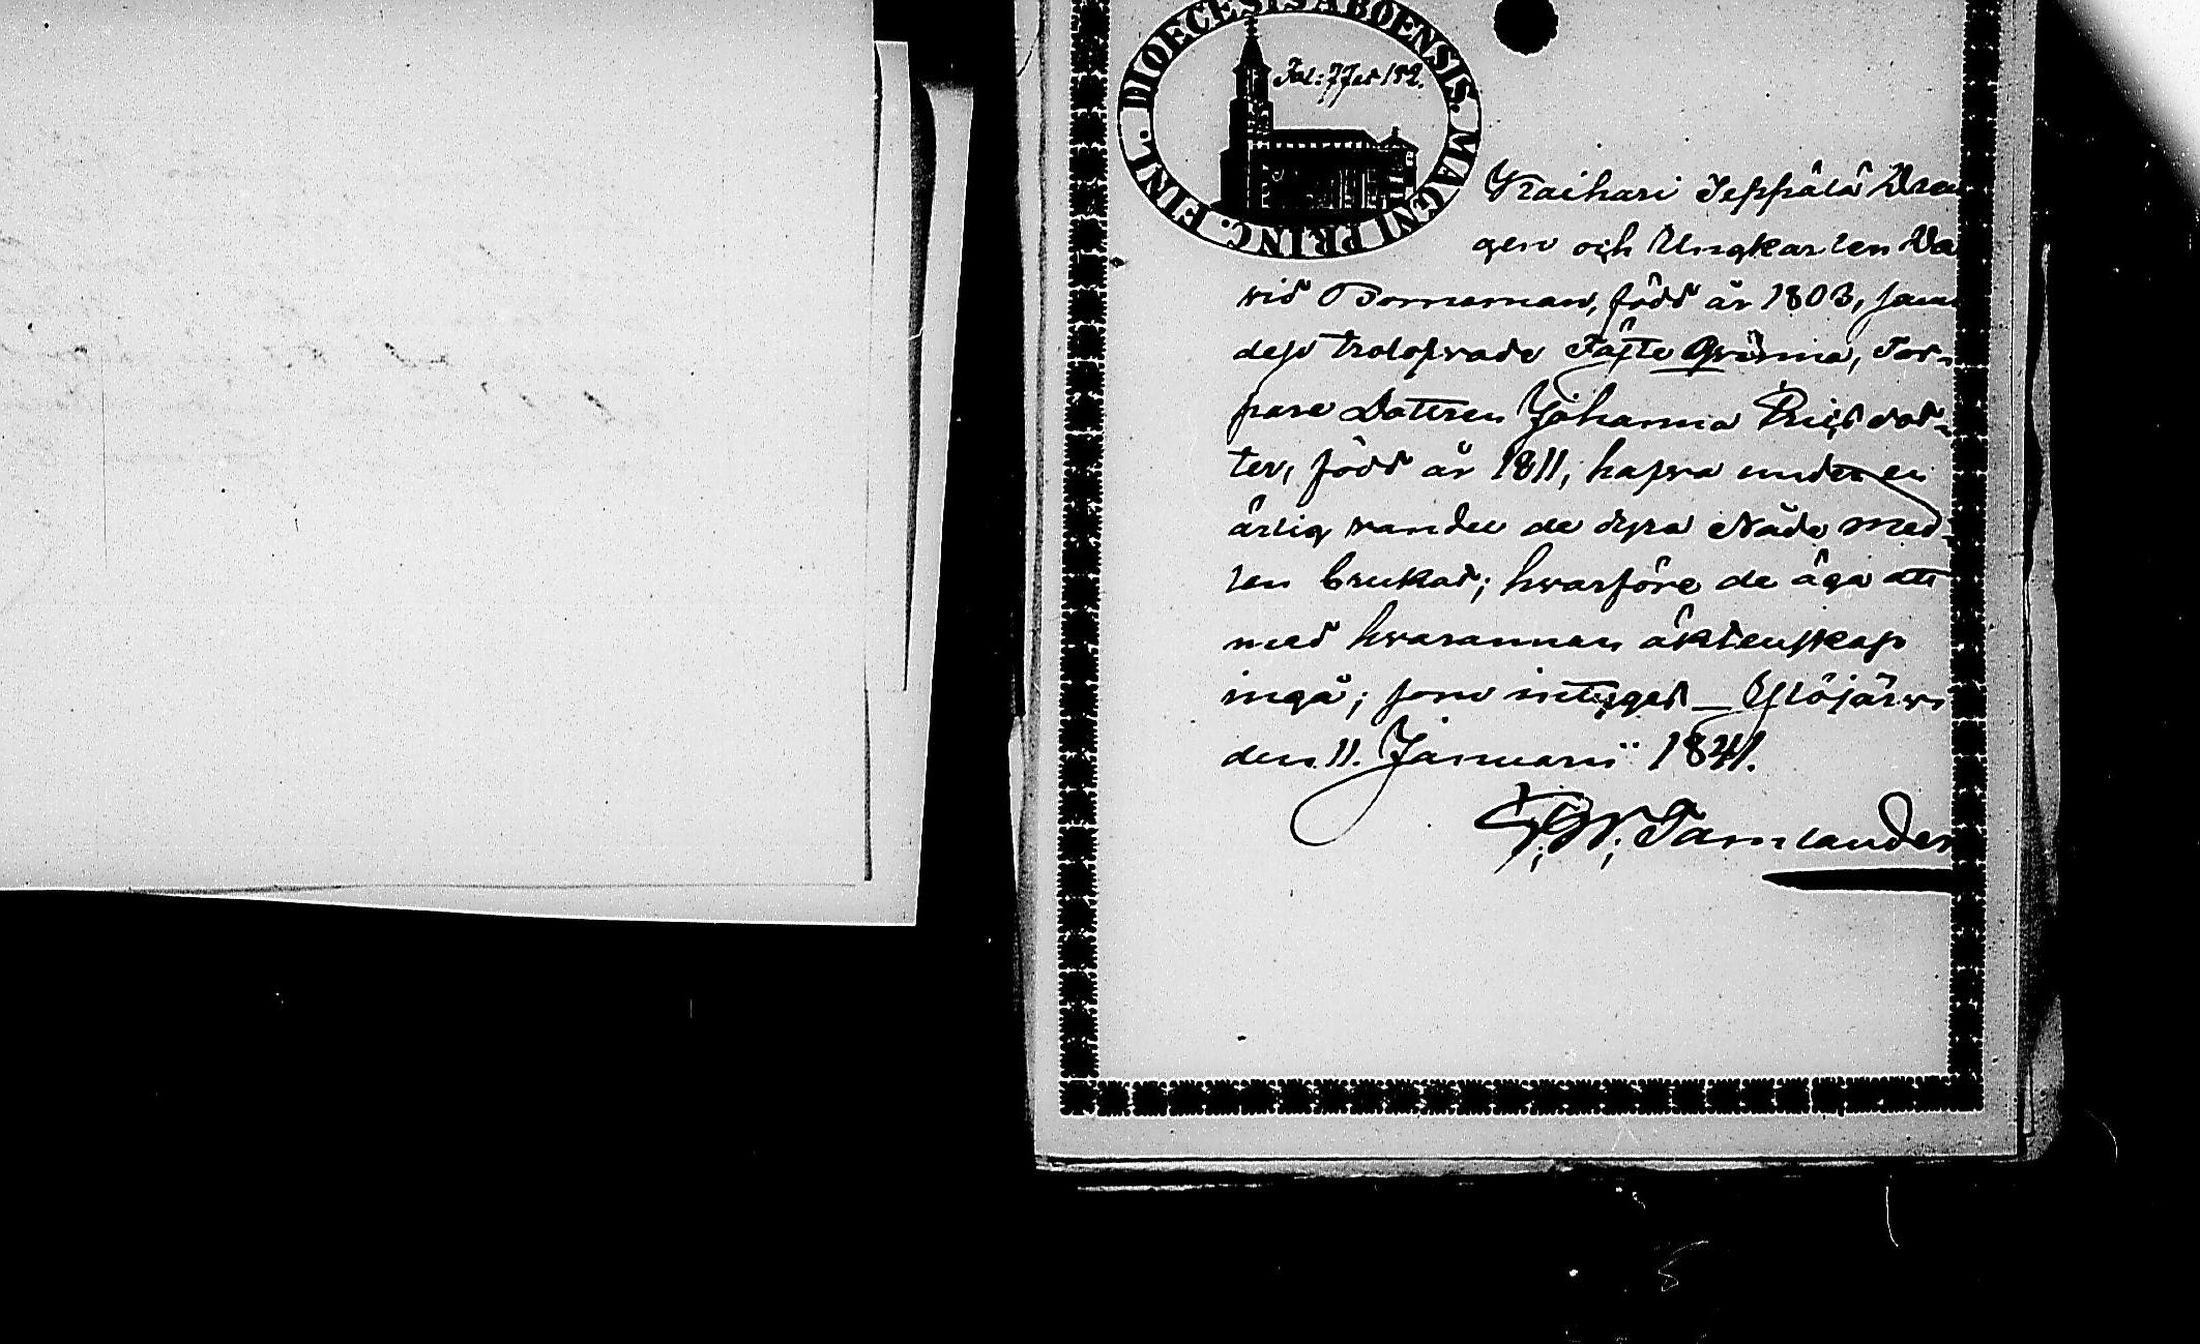 DIOECESIS ABOENSIS. MAGNI PRINC. FINL.
Fol: 77 et 192.
Kraihari Seppälä Drä
gen och Ungkarlen Da
vid Bornman, född år 1803, sam
dess trolofvade Fäste Qvinna, Tor-
pare Dottren Johanna Eriks dot-
ter, född år 1811, hafva under en
ärlig vandel de dyra Nåde med-
len brukat; hvarföre de äga att
med hvarannan äktenskap
ingå; som intygas _ Ylöjärvi
den 11. Januarii 1841.
Tamlander